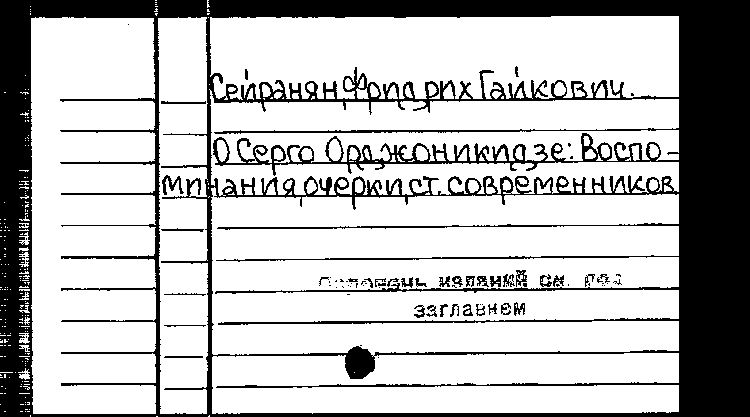 Сейранян, Фридрих Гайкович.
О Серго Орджоникидзе: Воспо-
минания, очерки, ст. современников
Перечень изданий см. под
заглавием